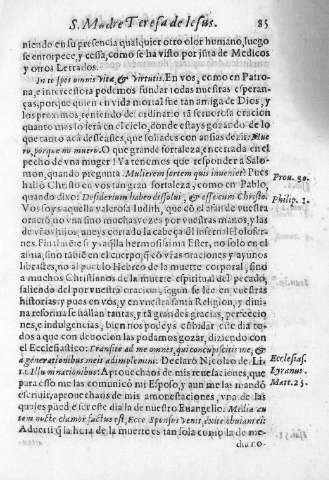 S. Madre Teresa de Iesus. 85
niendo en su presencia qualquier otro olor humano, luego
se entorpece, y cessa, como se ha visto por junta de Medicos
y otros Letrados.
In te spes omnis vitæ, & virtutis. En vos, como en Patro-
na, e intercessora podemos fundar todas nuestras esperan-
ças, porque quien en vida mortal fue tan amiga de Dios, y
los mortales, teniendo de ordinario tã feruorosa oracion
quanto mas lo serà en el cielo, donde estays gozando de lo
que tanto acà desseastes, que soliades con ansias dezir: Mue
ro, porque no muero. O que grande fortaleza, encerrada en el
pecho de vna muger! Ya tenemos que responder a Salo-
mon, quando pregunta. Mulierem fortem quis inueniet? Pues
hallò Christo en vos tan gran fortaleza, como en Pablo,
quando dixo: Desiderium habeo dissolui, & esse cum Christo.
Vos soys aquella valerosa Iudith, que cõ el alfange de vuestra
oracion, no vna sino muchas vezes por vuestras manos, y las
de vr̃os hijos, aueys cortado la cabeça del infernal Holofer-
nes. Finalmẽte soys aq̃lla hermosissima Ester, no solo en el
alma, sino tãbiẽ en el cuerpo, q̃ cõ vr̃as oraciones y ayunos
librastes, no al pueblo Hebreo de la muerte corporal, sino
a muchos Christianos de la muerte espiritual del pecado,
saliendo del por vuestra oracion, segun se lee en vuestras
historias: y pues en vos, y en vuestra santa Religion, y diui-
na reforma se hallan tantas, y tã grandes gracias, perfeccio
nes, e indulgencias, bien nos podeys cõbidar este dia to-
dos a que con deuocion las podamos gozar, diziendo con
el Ecclesiastico: Transite ad me omnes, qui concupiscitis me, &
à generationibus meis adimplemini. Declarò Nicolao de Li-
ra. Illuminationibus: Aprouechaos de mis reuelaciones, que
para esso me las comunicò mi Esposo, y aun me las mandò
escriuir, aprouechaos de mis amonestaciones, vna de las
quales puede ser este dia de nuestro Euangelio. Media au
tem nocte clamor factus est, Ecce Sponsus venit, exite obuiam ei:
Aduertì q̃ la hora de la muerte es tan sola como la de me-
dia no-
Prou. 30.
Philip. 1.
Ecclesias.
Lyranus.
Matt. 25.